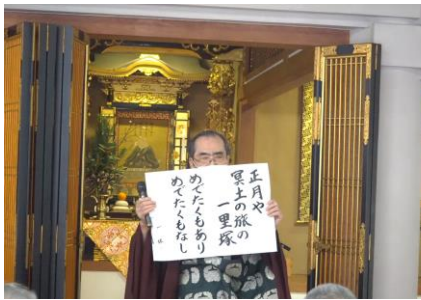 正月や
冥土の旅の
一里塚
めでたくもあり
めでたくもなし